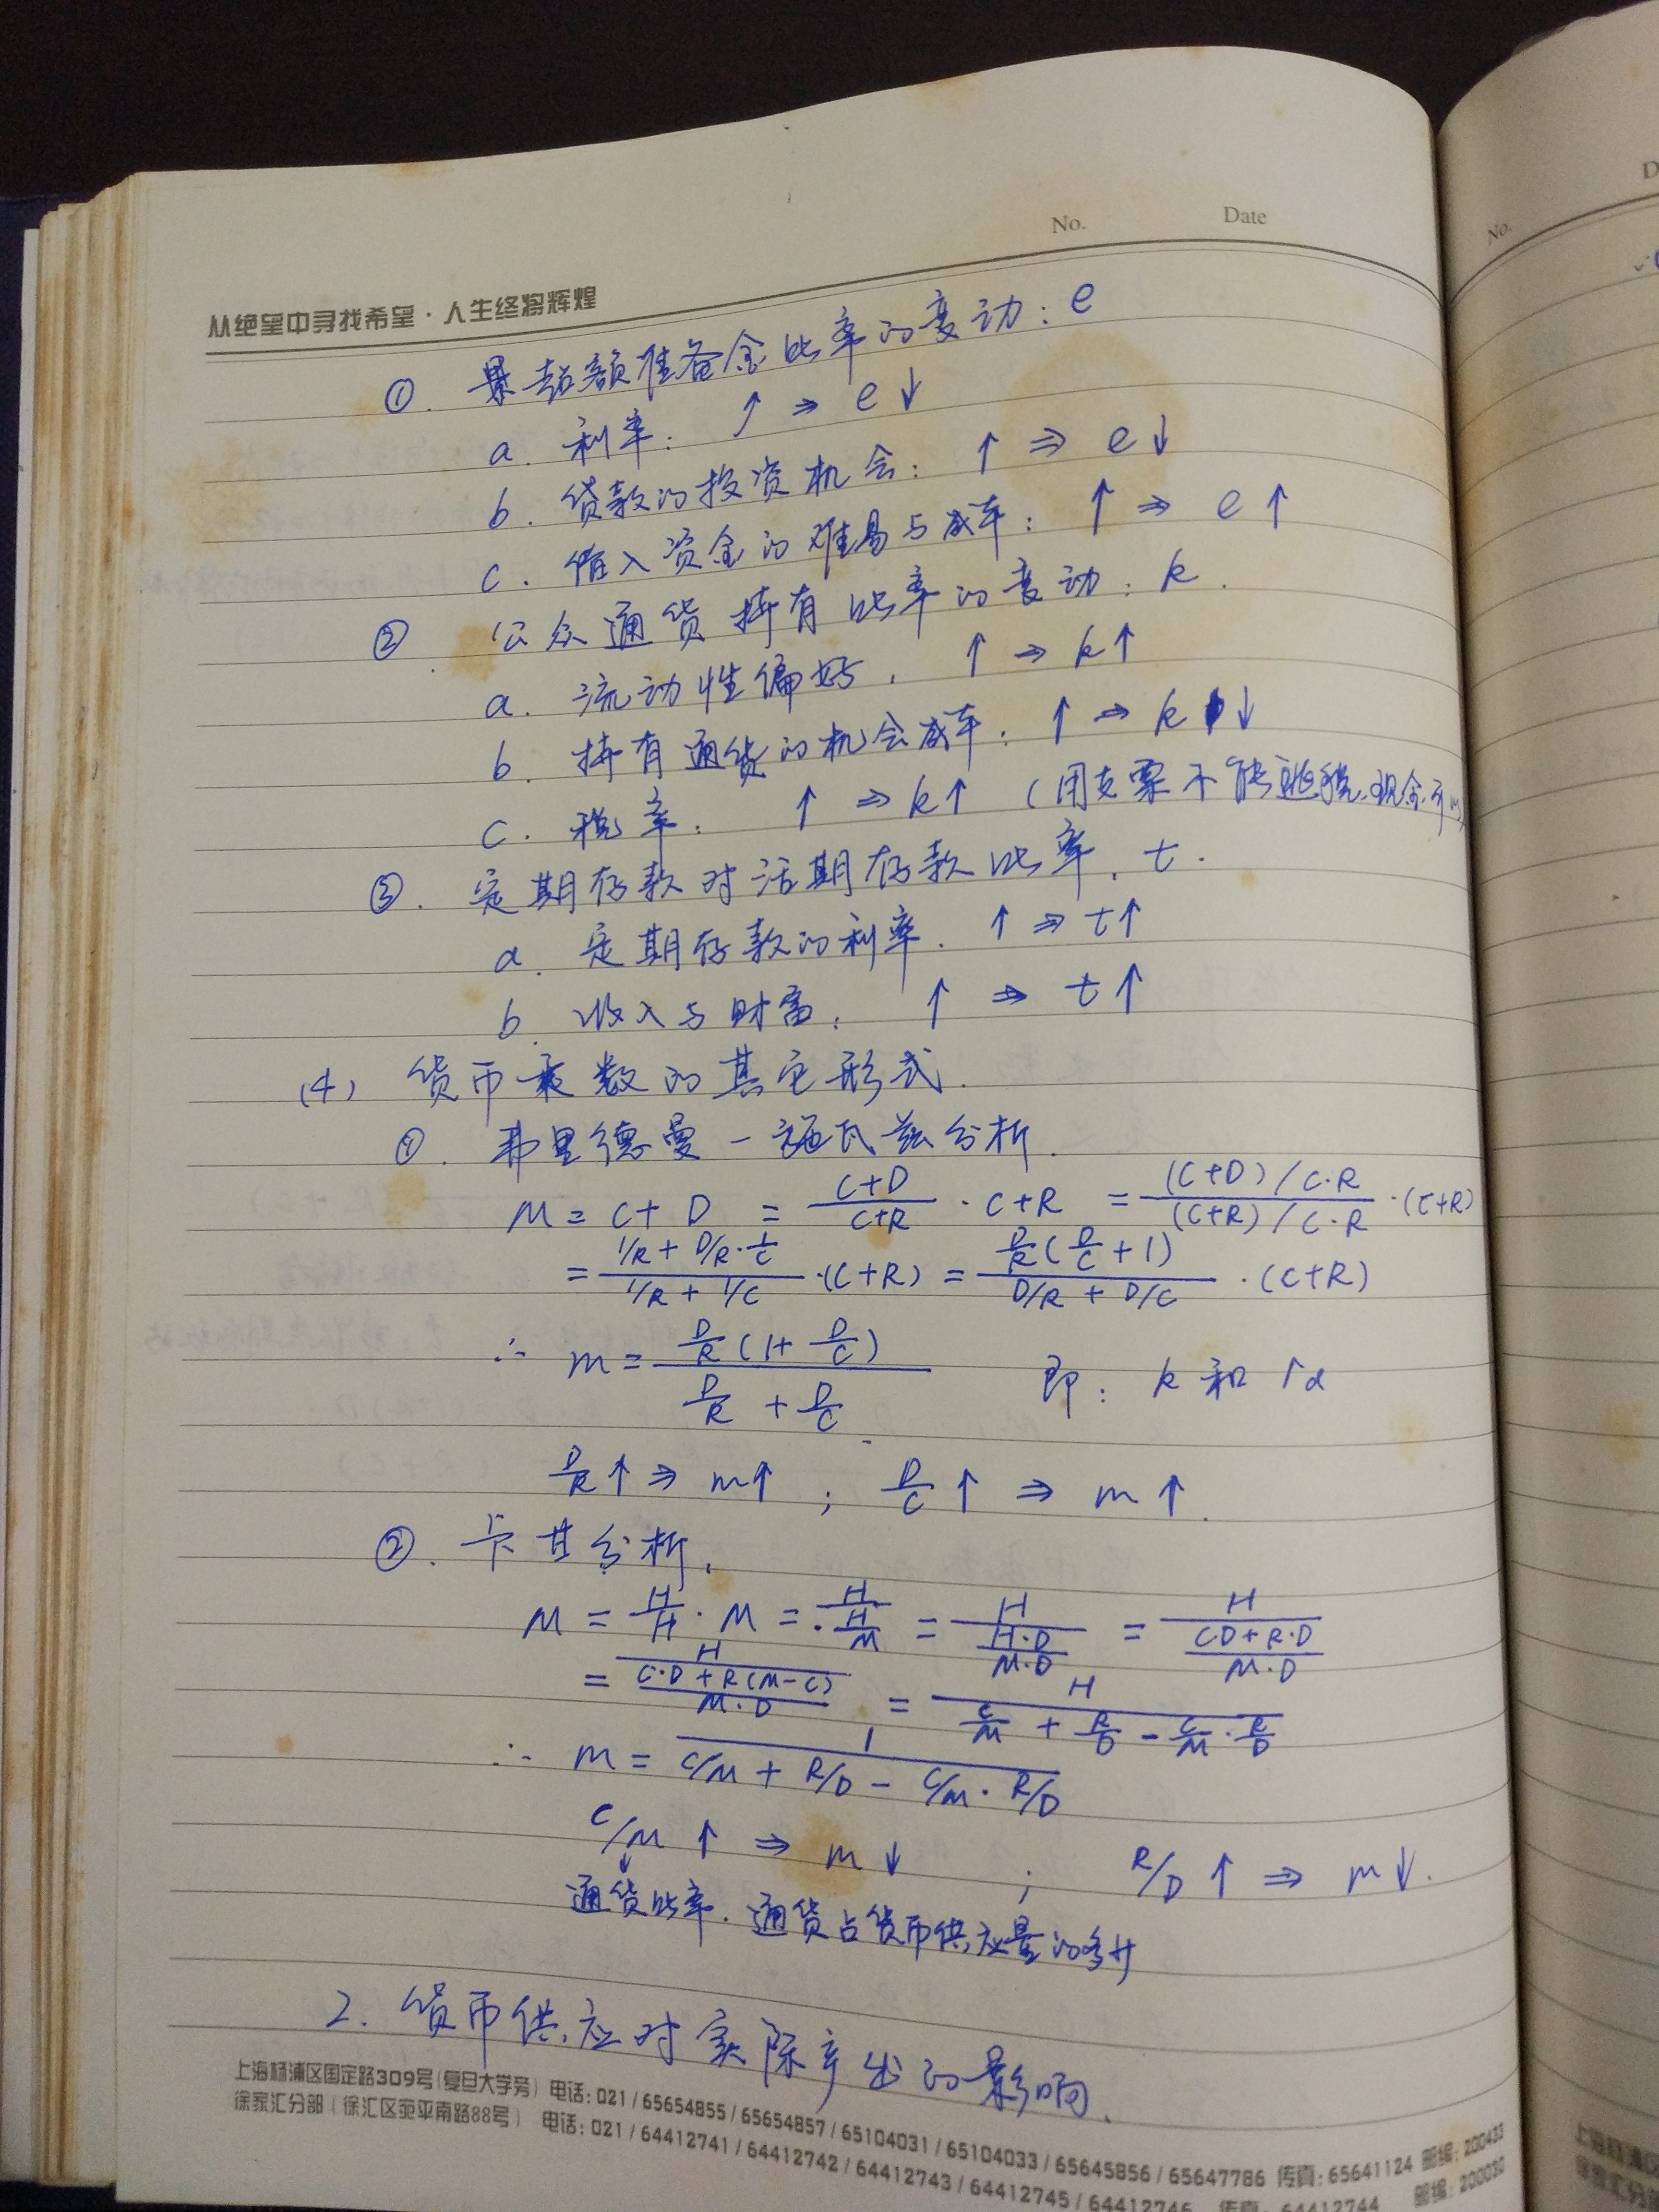 No. Date
从绝望中寻找希望·人生终将辉煌
①. 超额准备金比率的变动: e
a. 利率: ↑ ⇒ e↓
b. 贷款的投资机会: ↑ ⇒ e↓
c. 借入资金的难易与成本: ↑ ⇒ e↑
② 公众通货持有比率的变动: k.
a. 流动性偏好. ↑ ⇒ k↑
b. 持有通货的机会成本: ↑ ⇒ k↓
c. 税率: ↑ ⇒ k↑ (用支票不能逃税.现金可以)
③. 定期存款对活期存款比率. t.
a. 定期存款的利率. ↑ ⇒ t↑
b. 收入与财富: ↑ ⇒ t↑
(4) 货币乘数的其它形式.
①. 弗里德曼-施瓦兹分析.
M = C+D = \frac{C+D}{C+R} · C+R = \frac{(C+D)/C·R}{(C+R)/C·R} ·(C+R)
= \frac{1/R + D/R·\frac{1}{C}}{1/R + 1/C} ·(C+R) = \frac{\frac{D}{R}(\frac{D}{C}+1)}{D/R + D/C} ·(C+R)
∴ m = \frac{\frac{D}{R}(1+\frac{D}{C})}{\frac{D}{R}+\frac{D}{C}} 即: k 和 rd
\frac{D}{R}↑ ⇒ m↑ ; \frac{D}{C}↑ ⇒ m↑.
②. 卡甘分析.
M = \frac{H}{H}·M = \frac{H}{\frac{H}{M}} = \frac{H}{\frac{H·D}{M·D}} = \frac{H}{\frac{C·D+R·D}{M·D}}
= \frac{H}{\frac{C·D+R(M-C)}{M·D}} = \frac{H}{\frac{C}{M}+\frac{R}{D}-\frac{C}{M}·\frac{R}{D}}
∴ m = \frac{1}{C/M + R/D - C/M·R/D}
C/M ↑ ⇒ m↓ ; R/D ↑ ⇒ m↓.
↓
通货比率. 通货占货币供应量的多少
2. 货币供应对实际产出的影响.
上海杨浦区国定路309号(复旦大学旁) 电话:021/65654855/65654857/65104031/65104033/65645856/65647786 传真:65641124 邮编:200433
徐家汇分部(徐汇区宛平南路88号) 电话:021/64412741/64412742/64412743/64412745/64412746 传真:64412744 邮编:200030
No.